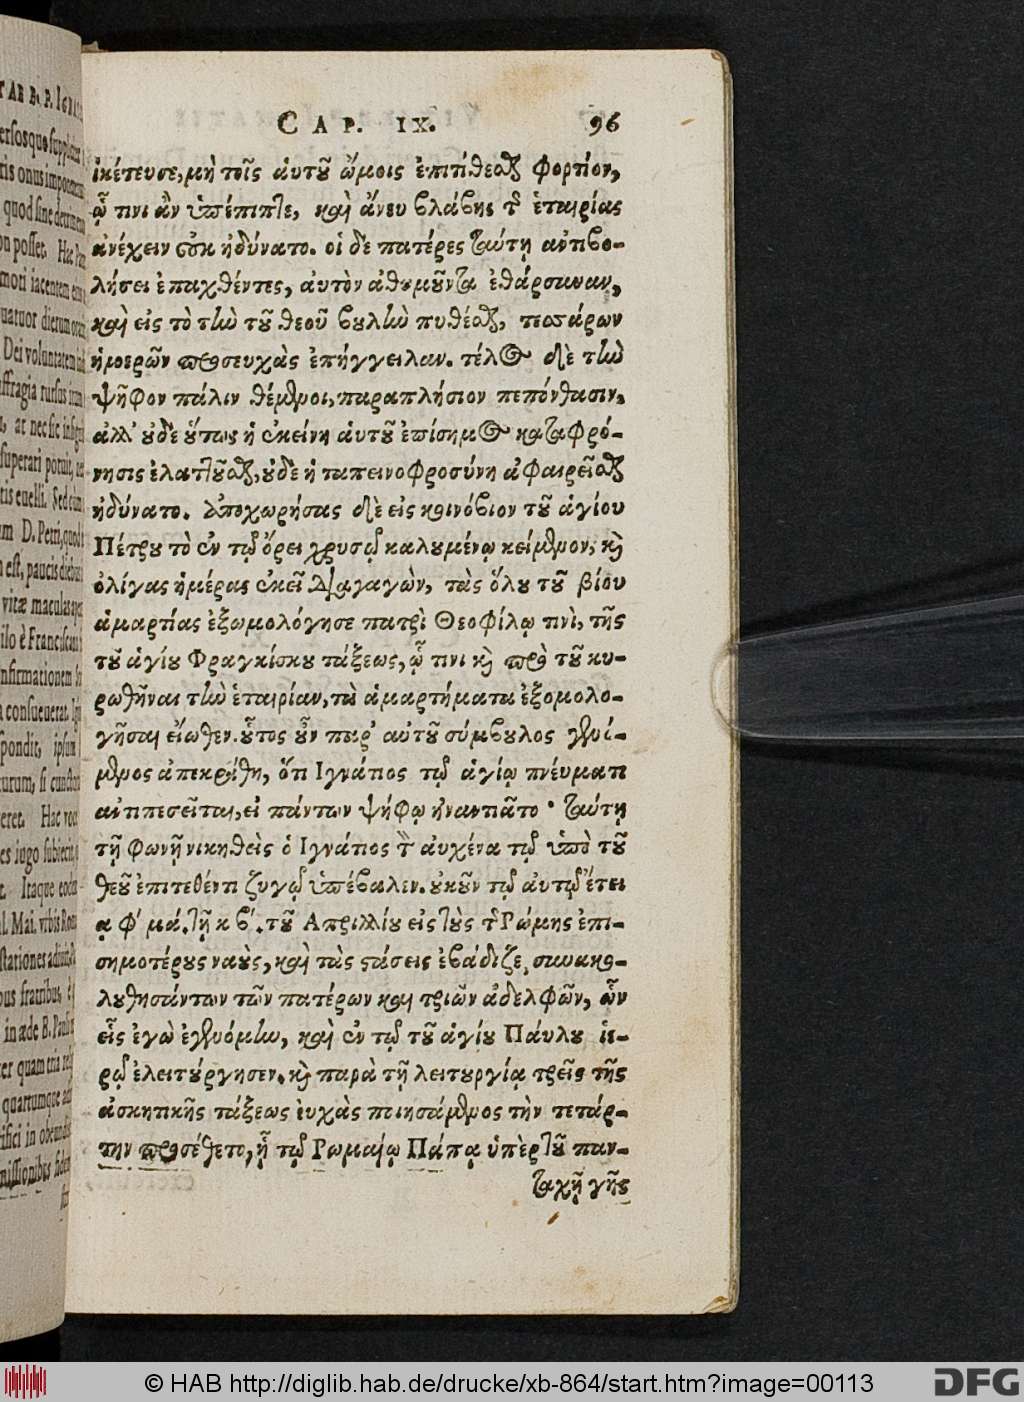 CAP. IX. 96
ἱκέτευσε, μὴ τοῖς ἁυτοῦ ὤμοις ἐπιτίθεσθαι φορτίον,
ᾧ τινι ἂν ὑπέπιπτε, καὶ ἄνευ βλάβης τῆς ἑταιρίας
ἀνέχειν οὐκ ἠδύνατο. οἱ δὲ πατέρες ταύτῃ ἀντιβο-
λήσει ἐπαχθέντες, ἀυτὸν ἀθυμοῦντα ἐθάρσυναν,
καὶ εἰς τὸ τὴν τοῦ θεοῦ βουλὴν πυθέσθαι, τεσσάρων
ἡμερῶν προσευχὰς ἐπήγγειλαν. τέλος δὲ τὴν
ψῆφον πάλιν θέμενοι, παραπλήσιον πεπόνθασιν,
ἀλλ' οὐδὲ οὕτως ἡ ἐκείνη ἁυτοῦ ἐπίσημος καταφρό-
νησις ἐλαττοῦσθαι, οὐδὲ ἡ ταπεινοφροσύνη ἀφαιρεῖσθαι
ἠδύνατο. Ἀποχωρήσας δὲ εἰς κοινόβιον τοῦ ἁγίου
Πέτρου τὸ ἐν τῷ ὄρει χρυσῷ καλουμένῳ κείμενον, καὶ
ὀλίγας ἡμέρας ἐκεῖ διαγαγὼν, τὰς ὅλου τοῦ βίου
ἁμαρτίας ἐξωμολόγησε πατρὶ Θεοφίλῳ τινὶ, τῆς
τοῦ ἁγίου Φραγκίσκου τάξεως, ᾧ τινι καὶ πρὸ τοῦ κυ-
ρωθῆναι τὴν ἑταιρίαν, τὰ ἁμαρτήματα ἐξομολο-
γῆσαι εἴωθεν. οὗτος οὖν παρ' αὐτοῦ σύμβουλος γενό-
μενος ἀπεκρίθη, ὅτι Ἰγνάτιος τῷ ἁγίῳ πνέυματι
ἀντιπεσεῖται, εἰ πάντων ψήφῳ ἠναντιᾶτο· ταύτῃ
τῇ φωνῇ νικηθεὶς ὁ Ἰγνάτιος τὸν ἀυχένα τῷ ὑπὸ τοῦ
θεοῦ ἐπιτεθέντι ζυγῷ ὑπέβαλεν. οὐκοῦν τῷ ἀυτῷ ἔτει
α φ' μά. τῇ κ β'. τοῦ Ἀπριλλίου εἰς τοὺς τῆς Ῥώμης ἐπι-
σημοτέρους ναοὺς, καὶ τὰς στάσεις ἐβάδιζε, συνακο-
λουθησάντων τῶν πατέρων καὶ τριῶν ἀδελφῶν, ὧν
εἷς ἐγὼ ἐγενόμην, καὶ ἐν τῷ τοῦ ἁγίου Πάυλου ἱε-
ρῷ ἐλειτούργησεν. καὶ παρὰ τῇ λειτουργίᾳ τρεῖς τῆς
ἀσκητικῆς τάξεως ἐυχὰς ποιησάμενος τὴν τετάρ-
την προσέθετο, ᾗ τῷ Ῥωμαίῳ Πάπᾳ ὑπὲρ τοῦ παν-
ταχῇ γῆς
© HAB http://diglib.hab.de/drucke/xb-864/start.htm?image=00113
DFG